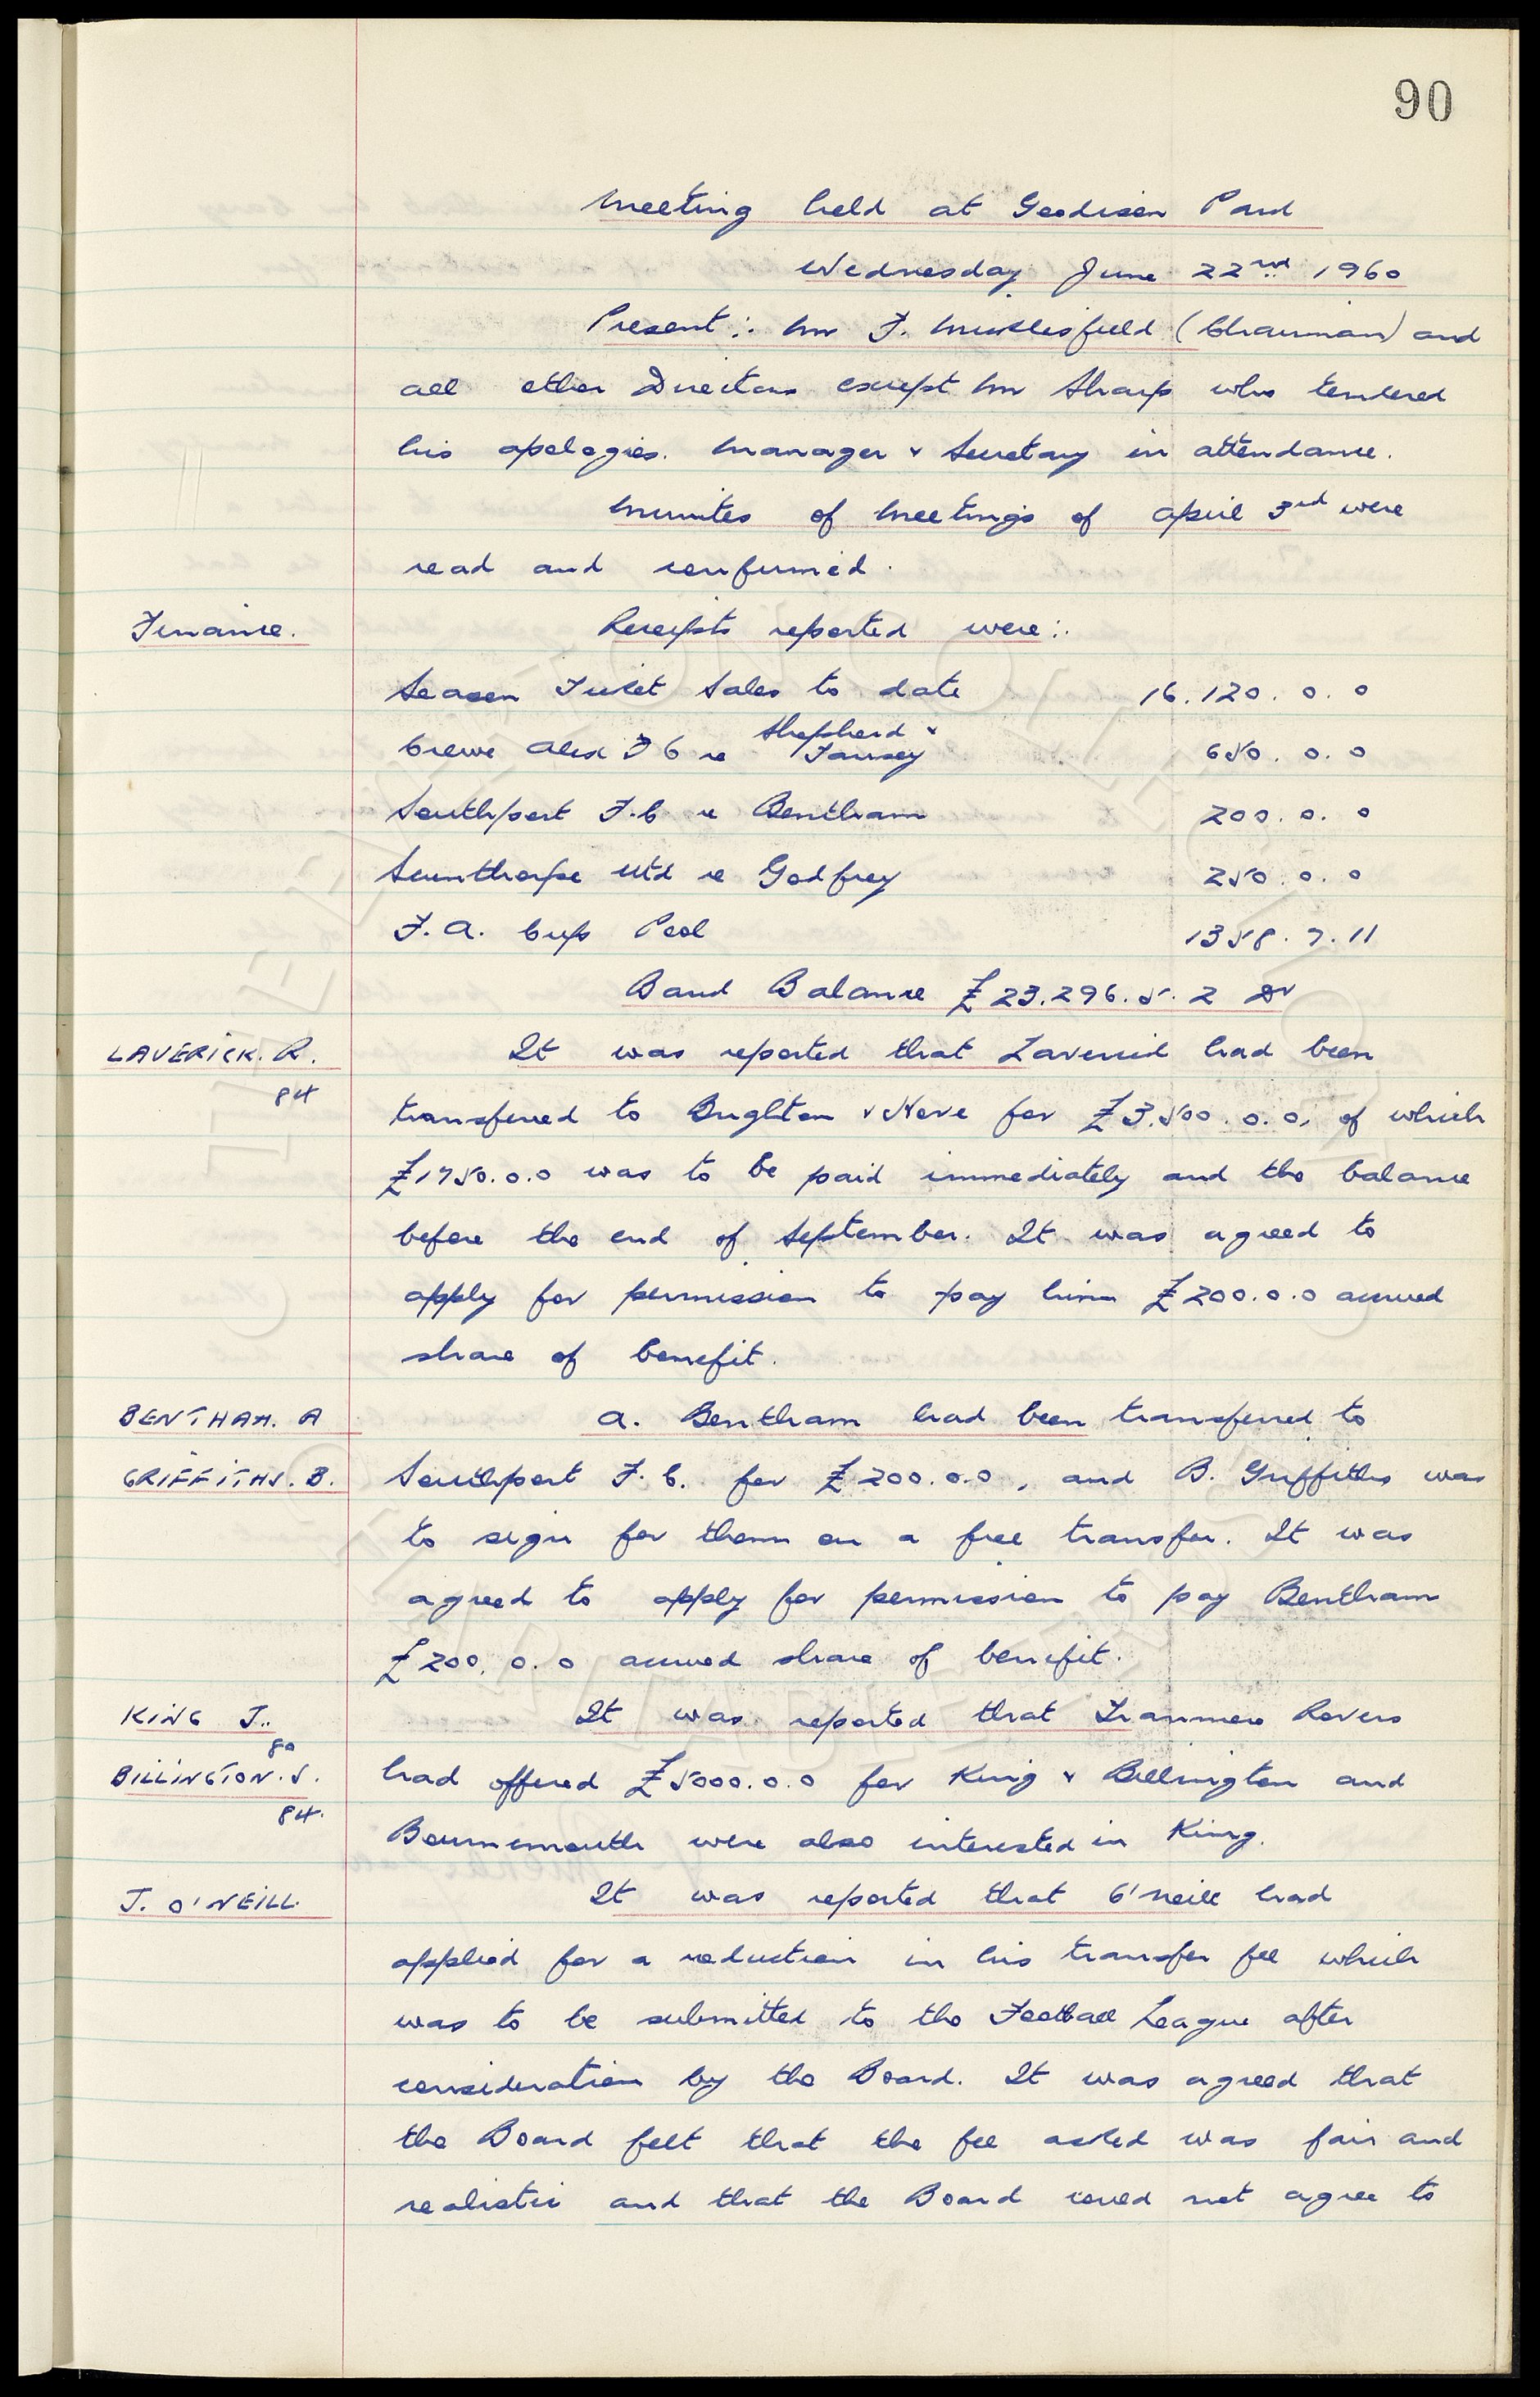 90
Meeting held at Goodison Park
Wednesday June 22nd 1960
Present:. Mr F. Micklesfield (Chairman) and
all other Directors except Mr Sharp who tendered
his apologies. Manager & Secretary in attendance.
Minutes of Meetings of April 3rd were
read and confirmed.
Finance. Receipts reported were:.
Season Ticket Sales to date 16.120. 0. 0
Shepherd &
Crewe Alex F C re Tansey 650. 0. 0
Southport F.C re Bentham 200. 0. 0
Scunthorpe Utd re Godfrey 250. 0. 0
F.A. Cup Pool 1358. 7. 11
Bank Balance £23.296. 5. 2 Dr
LAVERICK. R. It was reported that Laverick had been
84
transferred to Brighton & Hove for £3.500. 0. 0, of which
£1750.0.0 was to be paid immediately and the balance
before the end of September. It was agreed to
apply for permission to pay him £200.0.0 accrued
share of benefit.
BENTHAM. A A. Bentham had been transferred to
GRIFFITHS. B. Southport F.C. for £200.0.0, and B. Griffiths was
to sign for them on a free transfer. It was
agreed to apply for permission to pay Bentham
£200. 0. 0 accrued share of benefit.
KING J.. It was reported that Tranmere Rovers
80
BILLINGTON. S. had offered £5000.0.0 for King & Billington and
84.
Bournemouth were also interested in King.
J. O'NEILL. It was reported that O'Neill had
applied for a reduction in his transfer fee which
was to be submitted to the Football League after
consideration by the Board. It was agreed that
the Board felt that the fee asked was fair and
realistic and that the Board could not agree to